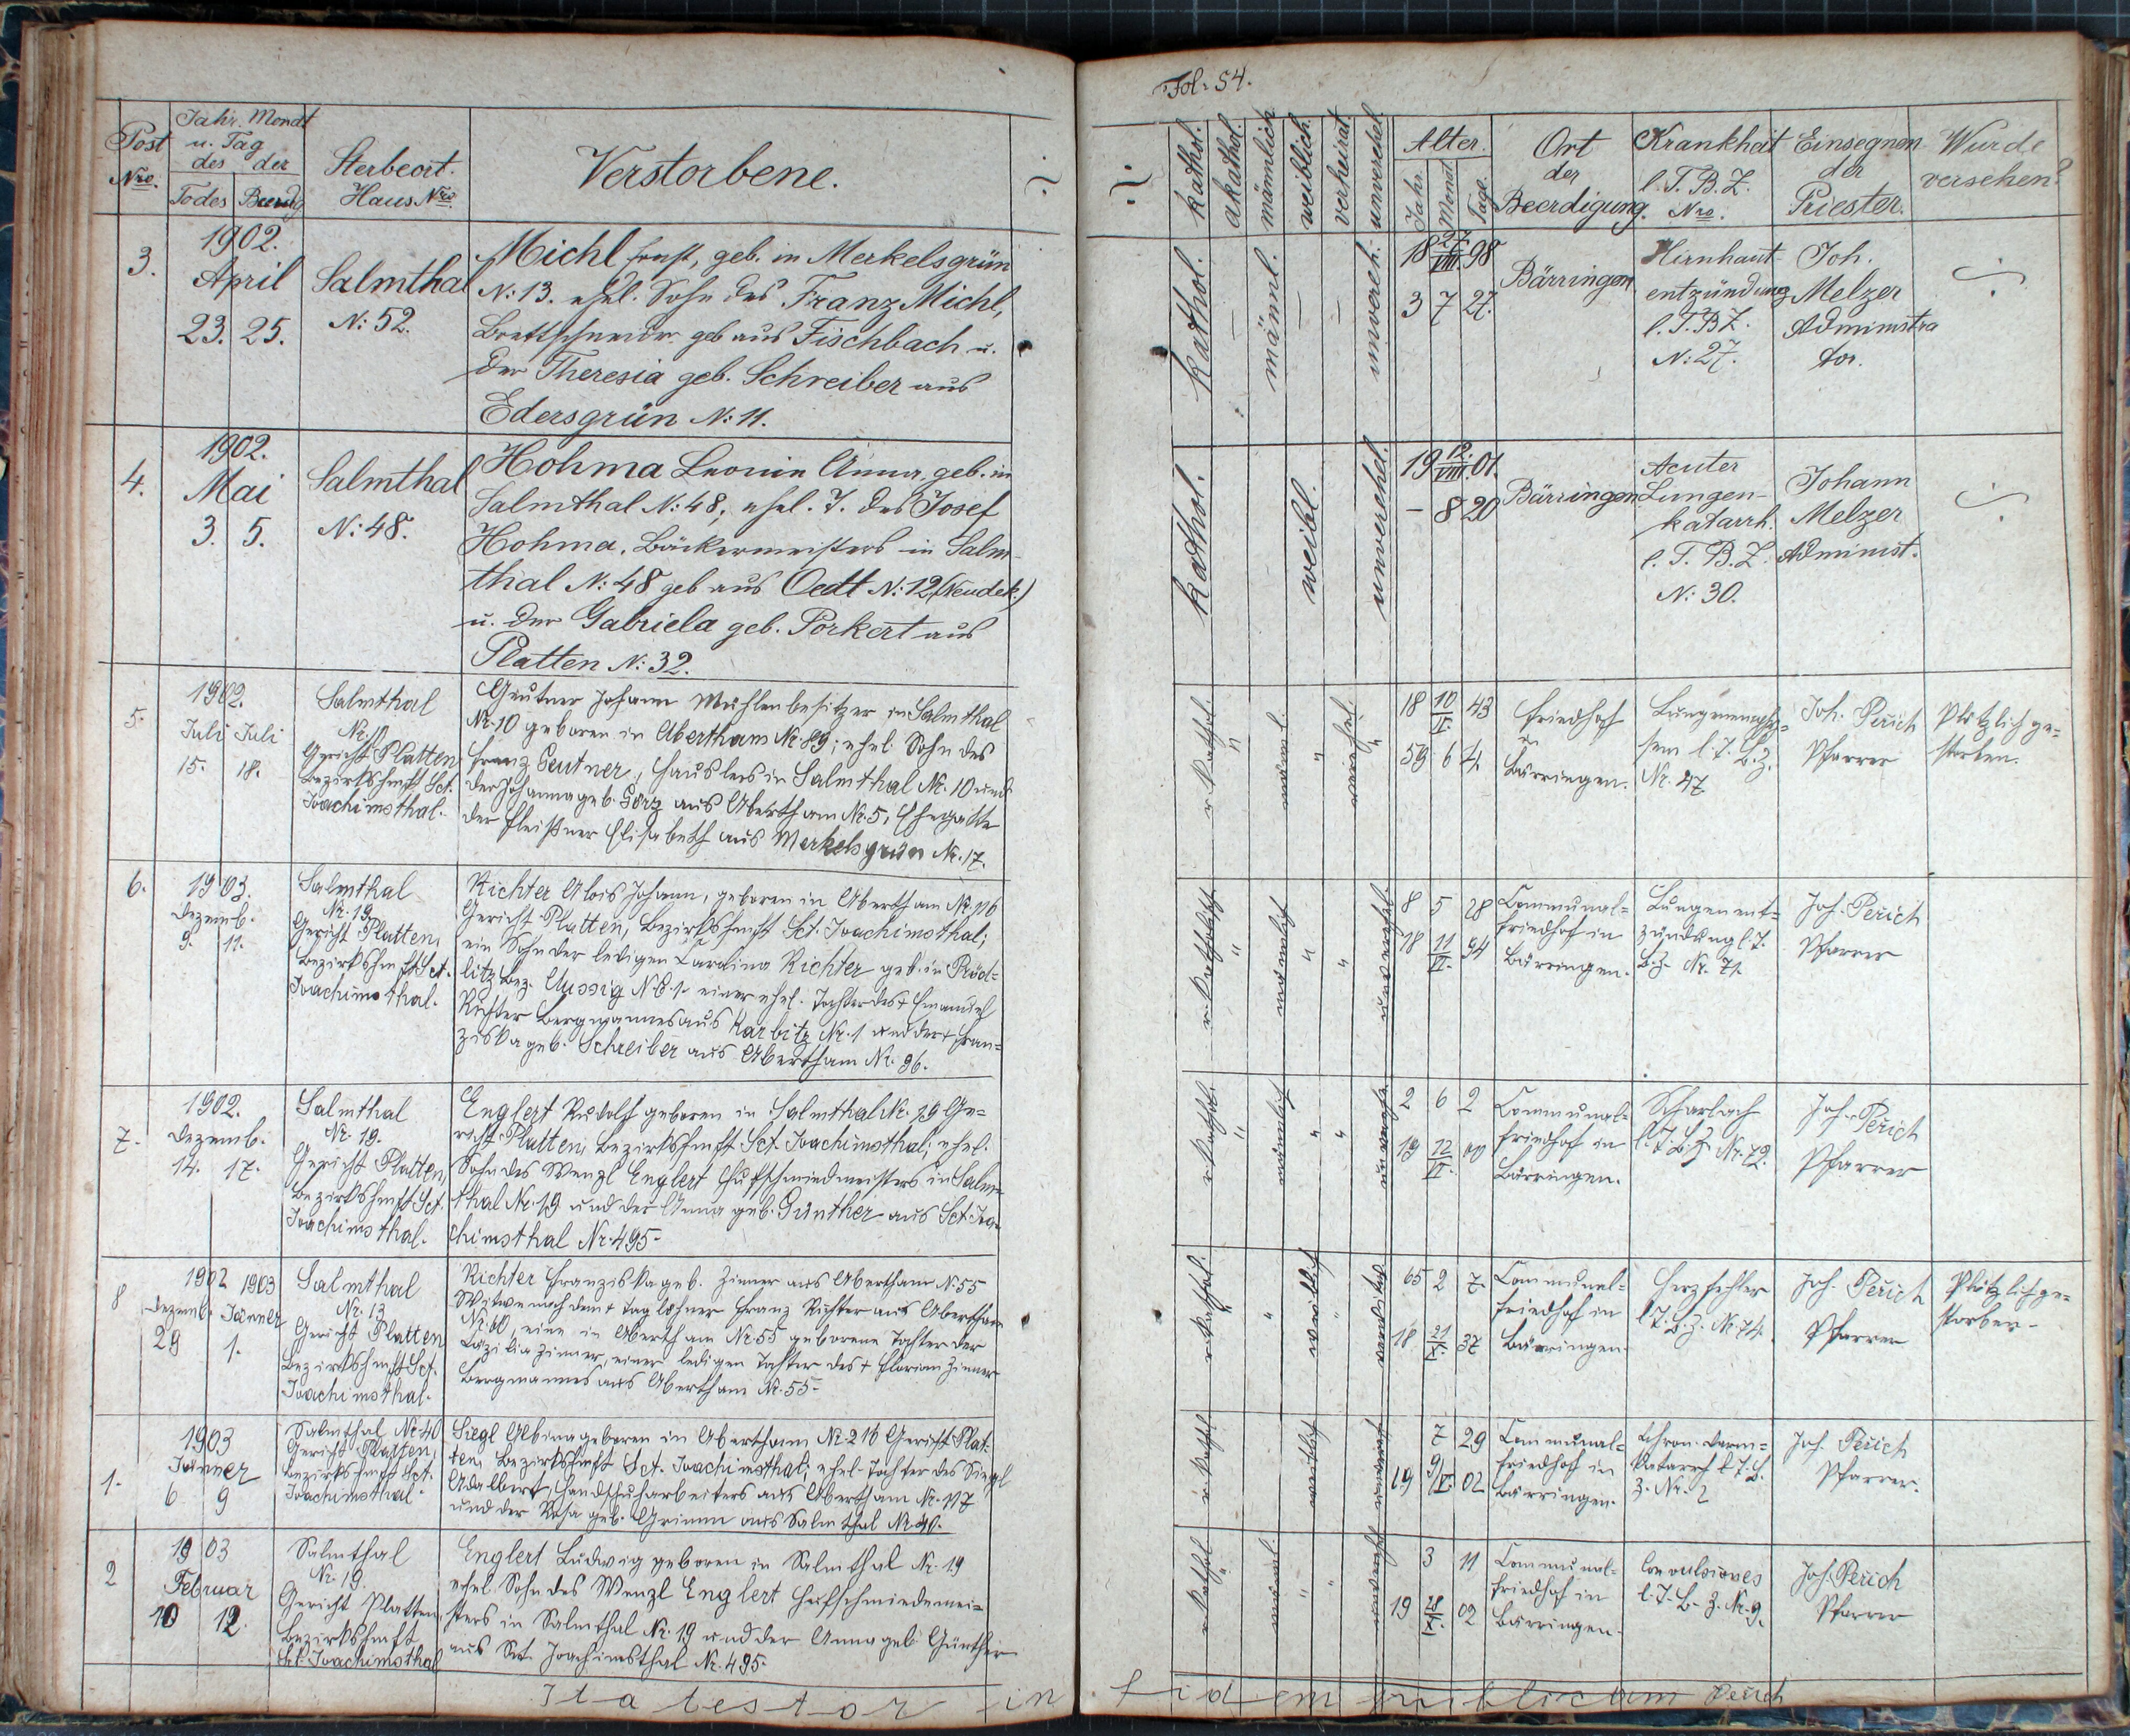 Fol. 54.
Post Nro.
Jahr. Monat u. Tag
des der
Todes Beerdg
Sterbeort.
Haus Nro.
Verstorbene.
kathol.
akathol.
männlich
weiblich.
verheirat.
unverehel.
Alter.
Jahr.
Monat
Tage.
Ort
der
Beerdigung.
Krankheit
l. T. B. Z.
Nro.
Einsegnen
der
Priester.
Wurde
versehen?
3.
1902.
April
23. 25.
Salmthal
N: 52.
Michl Ernst, geb. in Merkelsgrün
N: 13. ehel. Sohn des Franz Michl,
Brettschneider geb aus Fischbach u.
der Theresia geb. Schreiber aus
Edersgrün N: 11.
kathol.
männl.
unvereh.
18 27/VIII. 98
3 7 27.
Bärringen
Hirnhaut-
entzündung
l. T. B Z.
N: 27.
Joh.
Melzer
Administra
tor.
4.
1902.
Mai
3. 5.
Salmthal
N: 48.
Hohma Leonie Anna, geb. in
Salmthal N: 48; ehel. T. des Josef
Hohma, Bäckermeisters in Salm-
thal N: 48 geb aus Oedt N: 12 (Neudek.)
u. der Gabriela geb. Porkert aus
Platten N: 32.
kathol.
weibl.
unverehel.
19 12./VIII. 01.
- 8 20
Bärringen
Acuter
Lungen-
katarrh.
l. T. B. Z.
N: 30.
Johann
Melzer
Administ.
5.
1902.
Juli Juli
15. 18.
Salmthal
Gericht Platten
Bezirkshmft Sct.
Joachimsthal.
Geutner Johann Mühlenbesitzer in Salmthal
Nr. 10 geboren in Abertham Nr. 89; ehel. Sohn des
Franz Geutner, Häuslers in Salmthal Nr. 10 und
der Johanna geb. Görz aus Abertham Nr. 5, Ehegatte
der Fleißner Elisabeth aus Merkelsgrün Nr. 17.
r. kathol.
männl.
verehel.
18 10/II. 43
59 6 4.
Friedhof
in
Bärringen.
Lungenemphy-
sem l. T. B. Z.
Nr. 47
Joh. Peřich
Pfarrer
Plötzlich ge-
storben.
6.
1903.
Dezemb.
9. 11.
Salmthal
Nr. 19
Gericht Platten,
Bezirkshmft Sct.
Joachimsthal.
Richter Alois Johann, geboren in Abertham Nr. 116
Gericht Platten, Bezirkshmft Sct. Joachimsthal;
ein Sohn der ledigen Karolina Richter geb. in Pröd-
litz Bez. Aussig N. C. 1. einer ehel. Tochter des + Emanuel
Richter Bergmannes aus Karbitz Nr. 1 und der + Fran-
ziska geb. Schreiber aus Abertham Nr. 96.
r. katholisch
männlich
unverehel.
8 5 28
18 11/VI. 94
Communal-
friedhof in
Bärringen.
Lungenent-
zündung l. T.
B. Z. Nr. 71.
Joh. Peřich
Pfarrer
7.
1902.
Dezemb.
14. 17.
Salmthal
Nr. 19.
Gericht Platten,
Bezirkshmft Sct.
Joachimsthal.
Englert Rudolf geboren in Salmthal Nr. 19 Ge-
richt Platten, Bezirkshmft Sct. Joachimsthal; ehel.
Sohn des Wenzl Englert Hufschmiedmeisters in Salm-
thal Nr. 19 und der Anna geb. Günther aus Sct. Joa-
chimsthal Nr. 495.
r. kathol.
männlich
unverehel.
2 6 2
19 12/VI. 00
Communal-
friedhof in
Bärringen.
Scharlach
l. T. B. Z. Nr. 72.
Joh. Peřich
Pfarrer
8
1902 1903
Dezemb. Jänner
29 1.
Salmthal
Nr. 13
Gericht Platten
Bezirkshmft Sct.
Joachimsthal.
Richter Franziska geb. Zinner aus Abertham N. 55
Witwe nach dem + Taglöhner Franz Richter aus Abertham
Nr. 60, eine in Abertham Nr. 55 geborene Tochter der
Cäzilia Zinner, einer ledigen Tochter des + Florian Zinner
Bergmannes aus Abertham Nr. 55.
r. kathol.
weiblich
verwitwet
65 2 7
18 21/X. 37
Communal-
friedhof in
Bärringen.
Herzfehler
l. T. B. Z. Nr. 74.
Joh. Peřich
Pfarrer
Plötzlich ge-
storben.
1.
1903
Jänner
6 9
Salmthal Nr. 40
Gericht Platten,
Bezirkshmft Sct.
Joachimsthal.
Siegl Albina geboren in Abertham Nr. 216 Gericht Plat-
ten, Bezirkshmft Sct. Joachimsthal; ehel. Tochter des Siegl
Adalbert, Handschuharbeiters aus Abertham Nr. 117
und der Rosa geb. Grimm aus Salmthal Nr. 40.
r. kathol
weiblich
unverehel
7 29
19 9/V. 02
Communal-
friedhof in
Bärringen.
Chron. Darm-
katarrh l. T. B.
Z. Nr. 2
Joh. Peřich
Pfarrer.
2
1903
Februar
10 12.
Salmthal
Nr. 19.
Gericht Platten,
Bezirkshmft
Sct. Joachimsthal
Englert Ludwig geboren in Salmthal Nr. 19
ehel. Sohn des Wenzl Englert Hufschmiedemei-
sters in Salmthal Nr. 19 und der Anna geb. Günther
aus Sct. Joachimsthal Nr. 495.
r. kathol
männl.
unverehel
3 11
19 28/X. 02
Communal-
friedhof in
Bärringen.
Convulsiones
l. T. B. Z. Nr. 9.
Joh. Peřich
Pfarrer
Ita testor in fidem publicam Peřich